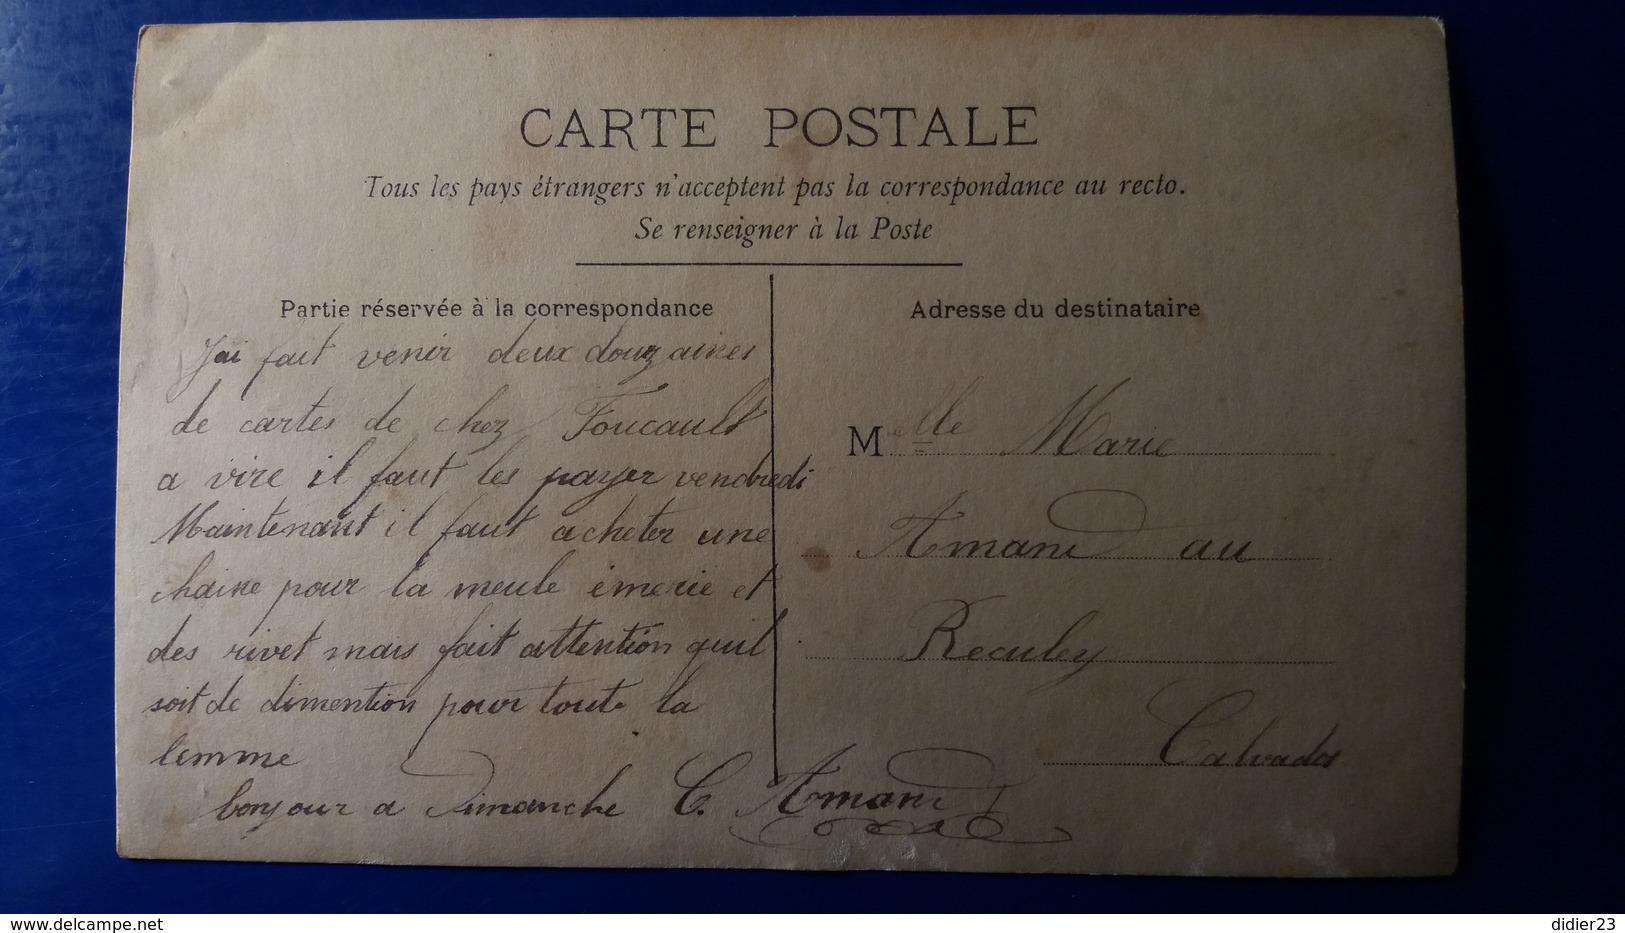 CARTE POSTALE
Tous les pays étrangers n'acceptent pas la correspondance au recto.
Se renseigner à la Poste
Partie réservée à la correspondance
J'ai fait venir deux douzaines
de cartes de chez Foucault
a vire il faut les payer vendredi
Maintenant il faut acheter une
chaine pour la meule émerie et
des rivet mais fait attention quil
soit de dimention pour toute la
lemme
bonjour a Dimanche C. Amand
Adresse du destinataire
Melle Marie
Amand au
Reculey
Calvados
didier23